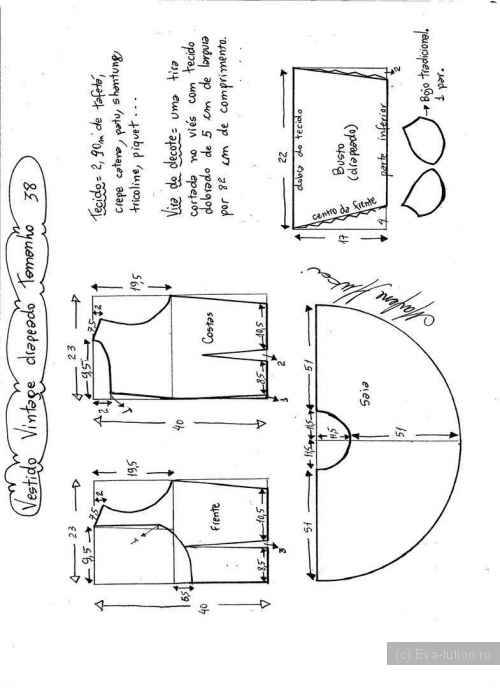 Vestido Vintage drapeado Tamanho 38
Tecido = 2,90m de tafetá,
crepe catena, patu, shantung,
tricoline, piquet ...
Vira do decote = uma tira
cortada no viés com tecido
dobrado de 5 cm de largura
por 82 cm de comprimento.
23
9,5
7,5
2
19,5
Frente
10,5
8,5
3
6,5
40
23
9,5
7,5
2
19,5
2
Costas
10,5
8,5
2
1
40
22
dobra do tecido
Busto
(drapeado)
parte inferior
centro da frente
17
4
2
Bojo tradicional.
1 par.
Saia
51
11,5
11,5
11,5
51
51
Marlene Mukai
(c) Eva-lution.ru